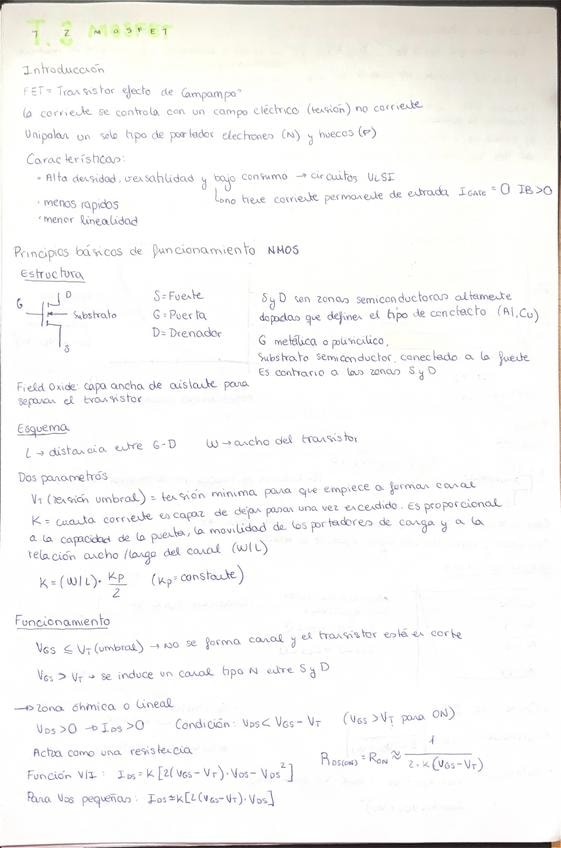 7 2 MOSFET
Introducción
FET = Transistor efecto de Campampo
la corriente se controla con un campo eléctrico (tensión) no corriente
Unipolar un solo tipo de portador electrones (N) y huecos (P)
Características:
• Alta densidad, versatilidad y bajo consumo → circuitos VLSI
↳ no tiene corriente permanente de entrada IGATE = 0 IB > 0
• menos rapidos
• menor linealidad
Principios básicos de funcionamiento NMOS
Estructura
G D Substrato S
S = Fuente
G = Puerta
D = Drenador
S y D son zonas semiconductoras altamente
dopadas que definen el tipo de conctacto (Al, Cu)
G metálica o polisicilico,
Substrato semiconductor, conectado a la fuente
Es contrario a las zonas S y D
Field Oxide: capa ancha de aislante para
separar el transistor
Esquema
L → distancia entre G-D W → ancho del transistor
Dos parametros
VT (tensión umbral) = tensión minima para que empiece a formar canal
K = cuanta corriente es capaz de dejar pasar una vez encendido. Es proporcional
a la capacidad de la puerta, la movilidad de los portadores de carga y a la
relación ancho/largo del canal (W/L)
K = (W/L) · KP/2 (Kp = constante)
Funcionamiento
VGS ≤ VT (umbral) → NO se forma canal y el transistor está en corte
VGS > VT → se induce un canal tipo N entre S y D
→ Zona óhmica o lineal
VDS > 0 → IDS > 0 Condición: VDS < VGS - VT (VGS > VT para ON)
Actúa como una resistencia
RDS(ON) = RON ≈ 1/(2·K(VGS - VT))
Función V/I: IDS = K[2(VGS - VT)·VDS - VDS²]
Para VDS pequeñas: IDS ≈ K[2(VGS - VT)·VDS]